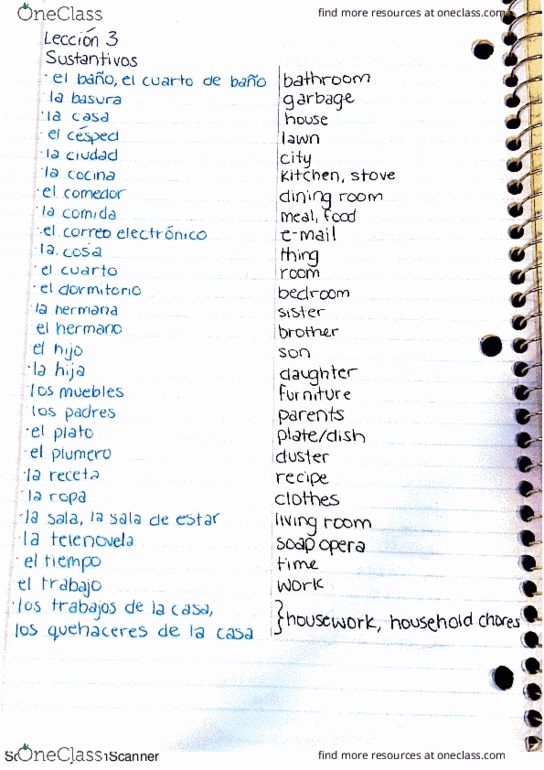 OneClass find more resources at oneclass.com
Lección 3
Sustantivos
· el baño, el cuarto de baño bathroom
· la basura garbage
· la casa house
· el césped lawn
· la ciudad city
· la cocina kitchen, stove
· el comedor dining room
· la comida meal, food
· el correo electrónico e-mail
· la cosa thing
· el cuarto room
· el dormitorio bedroom
· la hermana sister
el hermano brother
el hijo son
· la hija daughter
los muebles furniture
los padres parents
· el plato plate/dish
· el plumero duster
· la receta recipe
· la ropa clothes
· la sala, la sala de estar living room
· la telenovela soap opera
· el tiempo time
el trabajo work
· los trabajos de la casa,
los quehaceres de la casa } housework, household chores
OneClass Scanner find more resources at oneclass.com